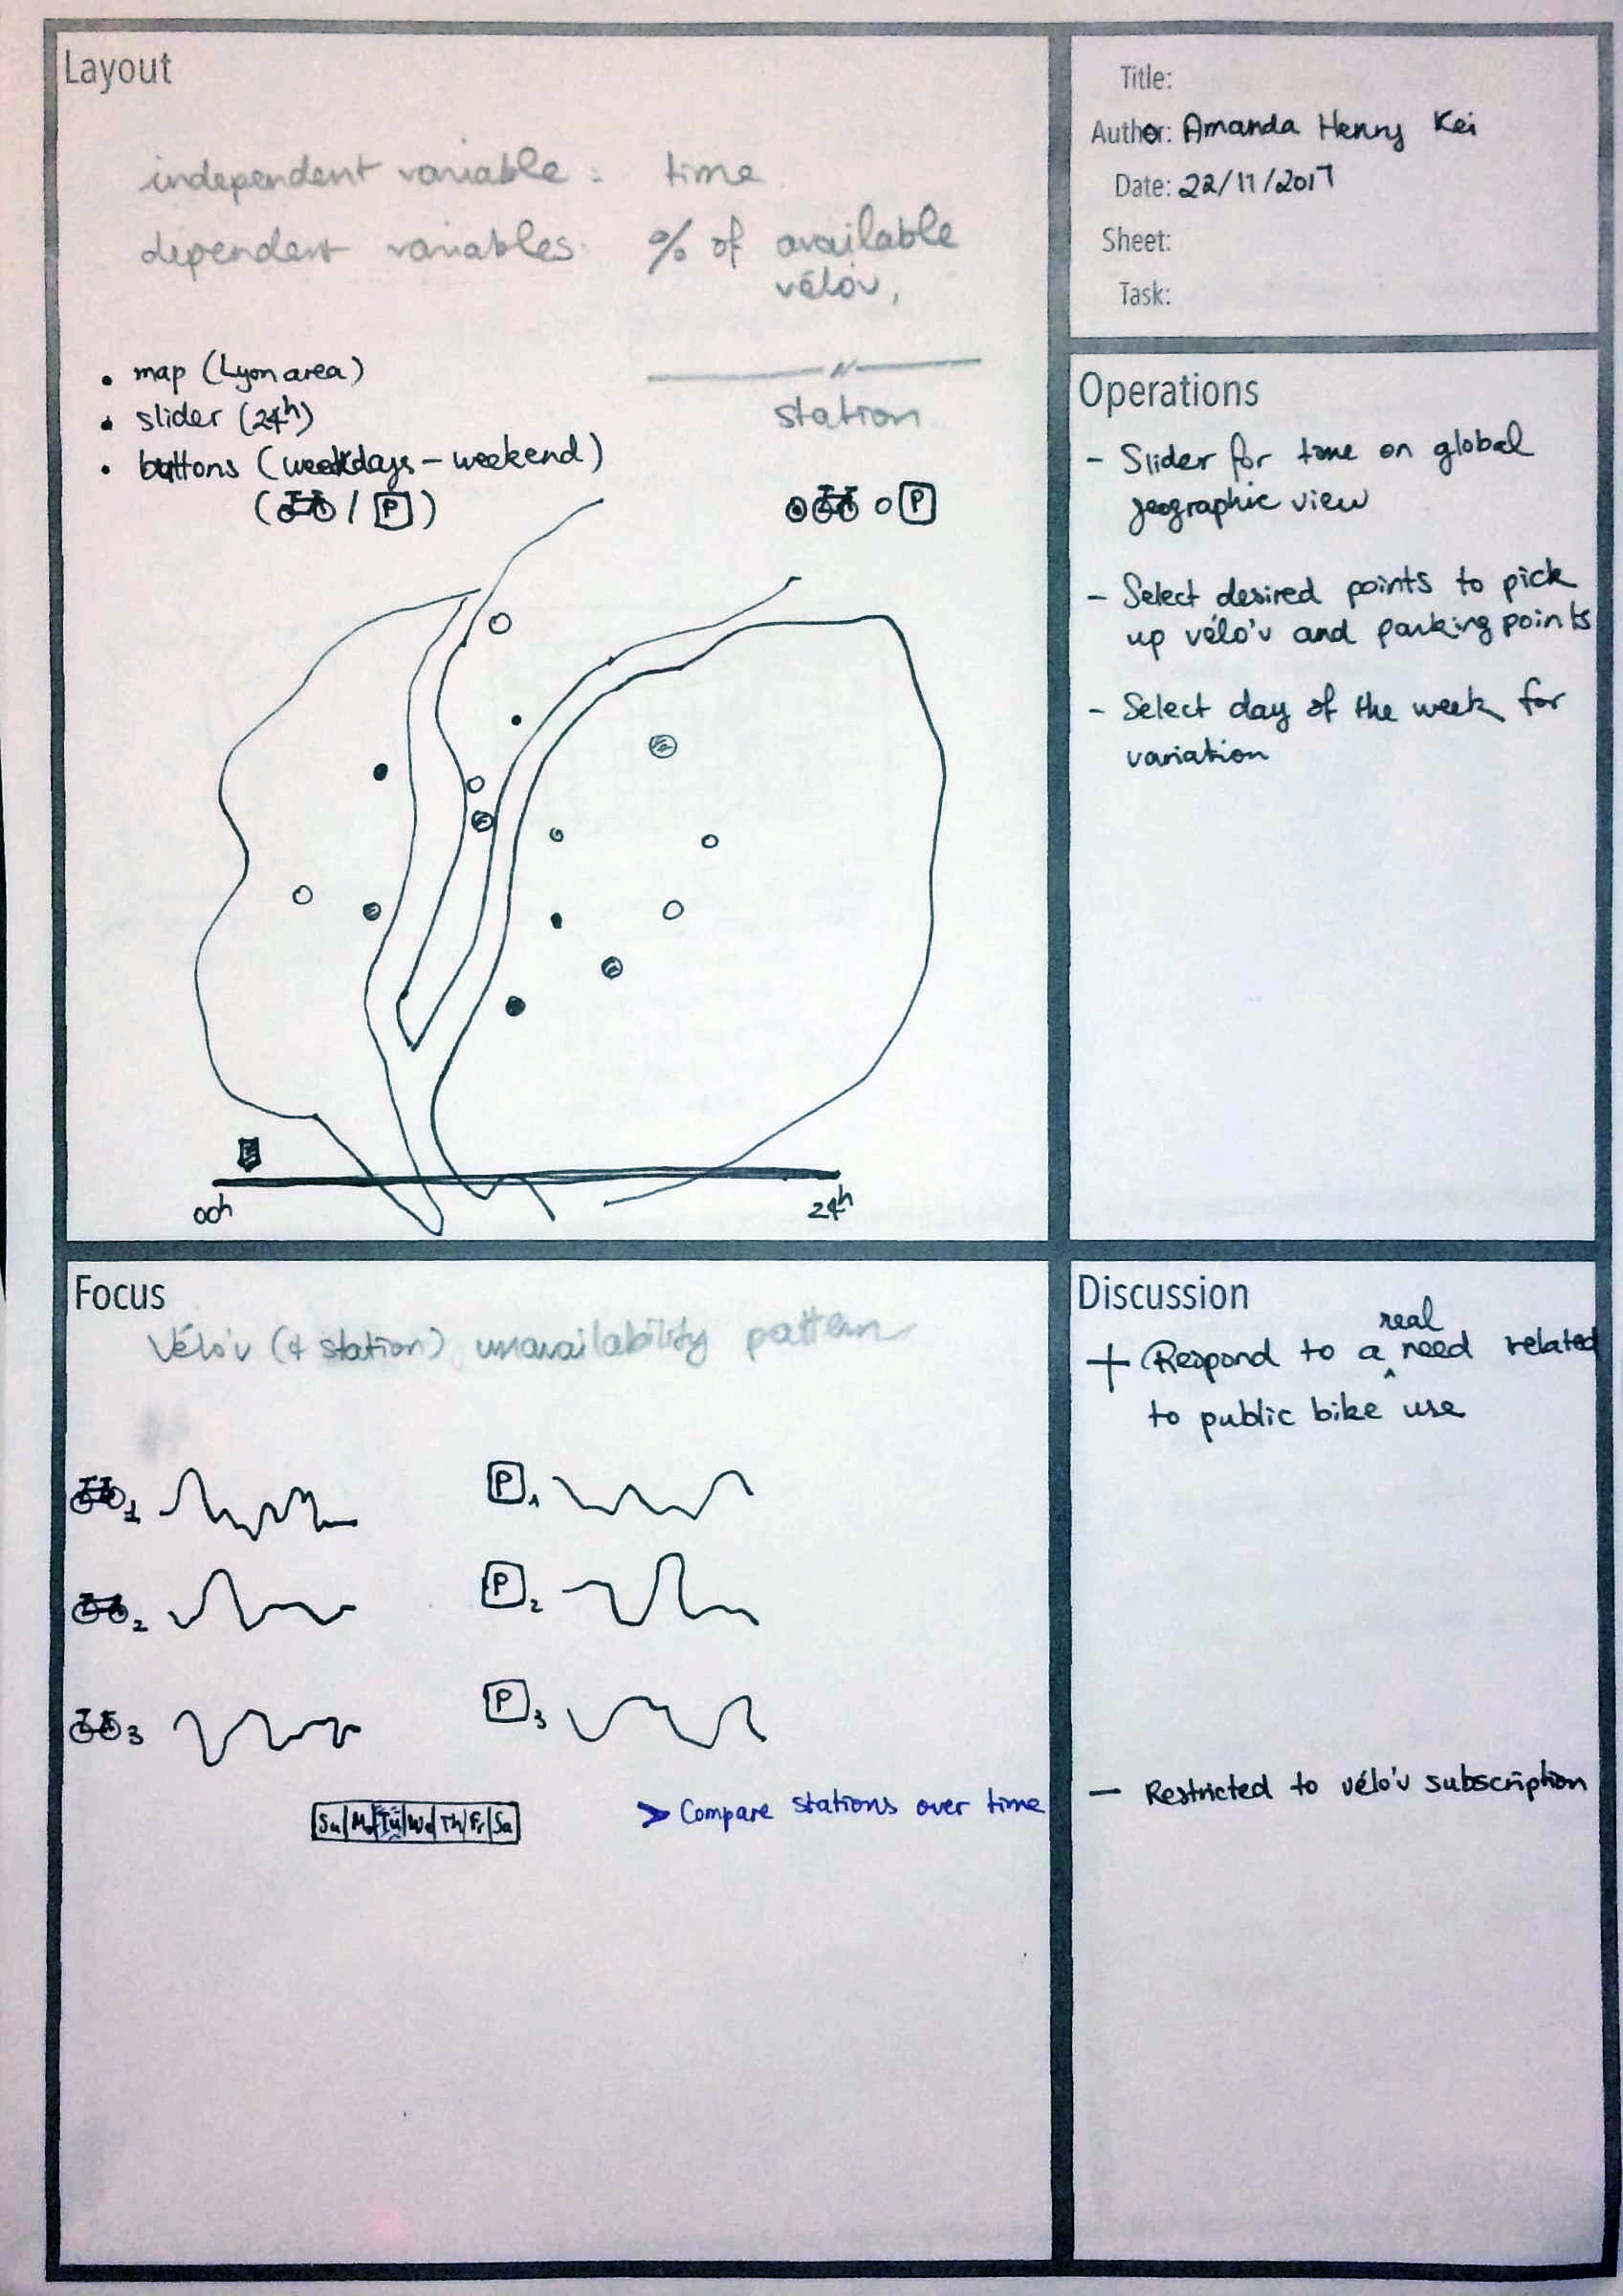 Layout
independent variable : time
dependent variables: % of available
vélo'v,
— " —
station
• map (Lyon area)
• slider (24h)
• buttons (weekdays - weekend)
( / P )
P
00h
24h
Title:
Author: Amanda Henry Kei
Date: 22/11/2017
Sheet:
Task:
Operations
- Slider for time on global
geographic view
- Select desired points to pick
up vélo'v and parking points
- Select day of the week for
variation
Focus
Vélo'v (& station) unavailability pattern
1
P 1
2
P 2
3
P 3
Su Mo Tu We Th Fr Sa
> Compare stations over time
Discussion
real
+ Respond to a ^ need related
to public bike use
- Restricted to vélo'v subscription